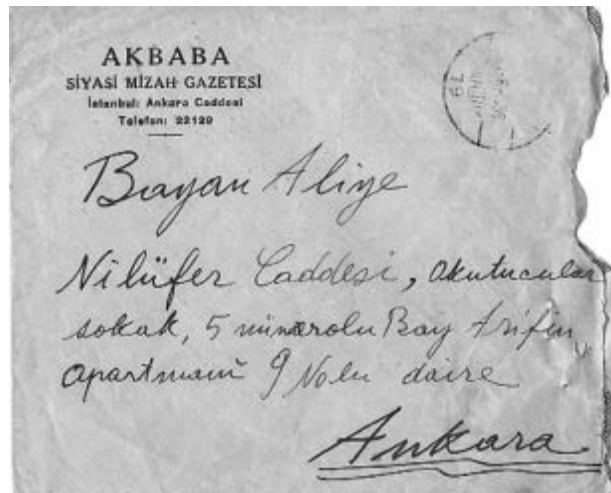 AKBABA
SİYASİ MİZAH GAZETESİ
İstanbul: Ankara Caddesi
Telefon: 22129
Bayan Aliye
Nilüfer Caddesi, Okutucular
sokak, 5 minarolu Bay Arifin
apartmanı 9 Nolu daire
Ankara